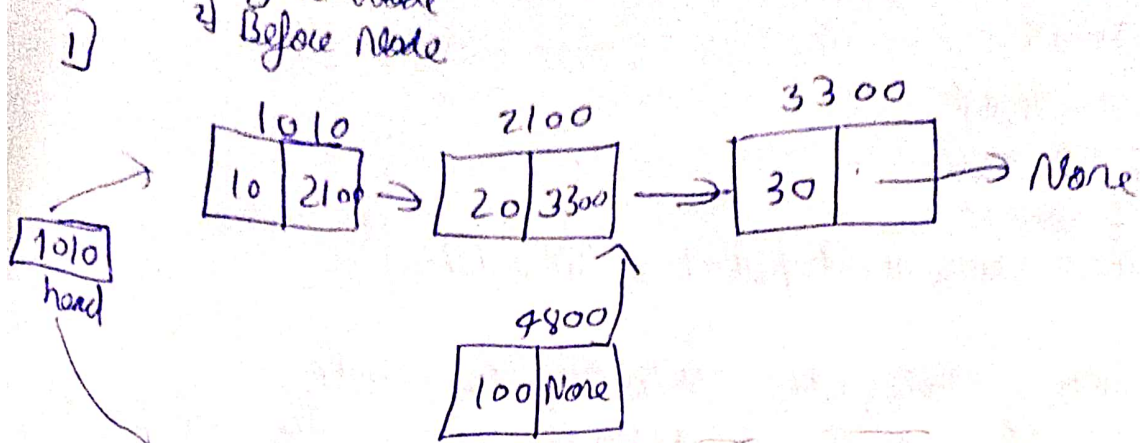 1]
2] Before Node
1010 2100 3300
10 2100 20 3300 30 None
1010
head
4800
100 None